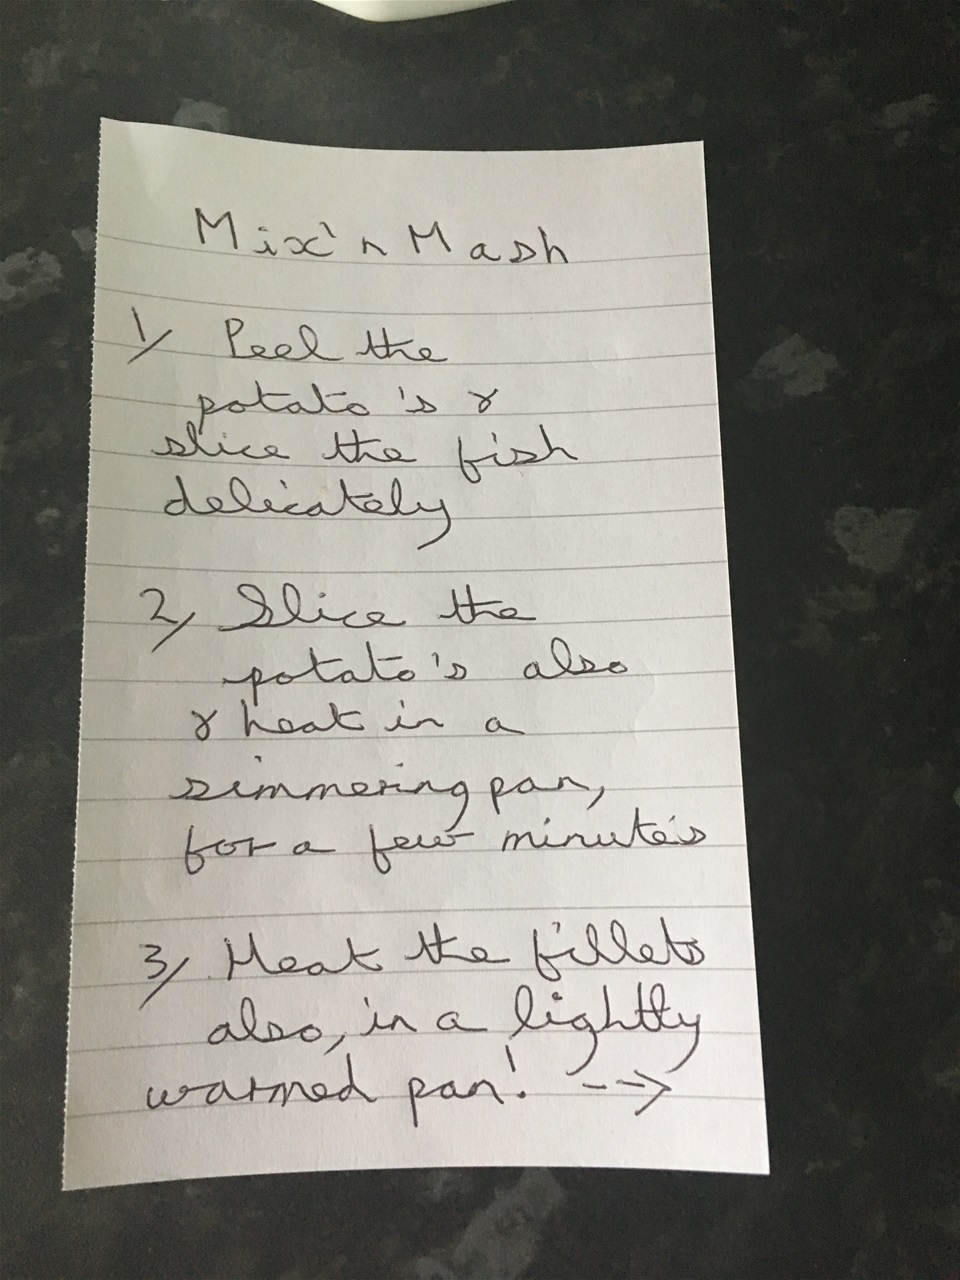 Mix'n Mash
1/ Peel the
potato's &
slice the fish
delicately
2/ Slice the
potato's also
& heat in a
simmering pan,
for a few minute's
3/ Heat the fillets
also, in a lightly
warmed pan! -->